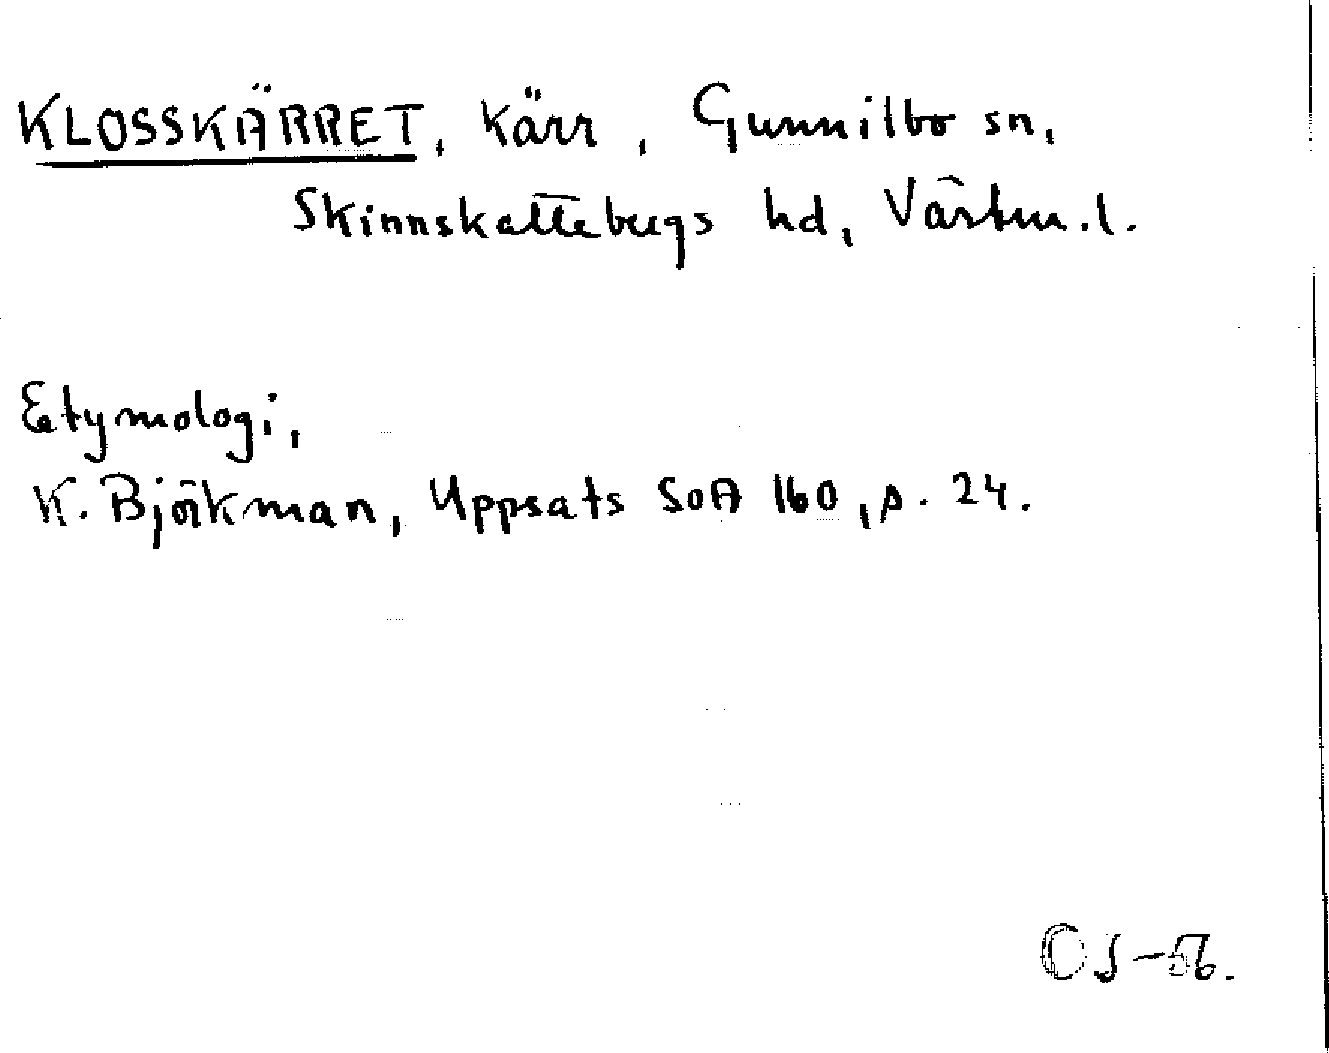 KLOSSKÄRRET, kärr, Gunnilbo sn,
Skinnskattebergs hd, Västm.l.
Etymologi,
K. Björkman, Uppsats SOA 160, p. 24.
OJ-56.